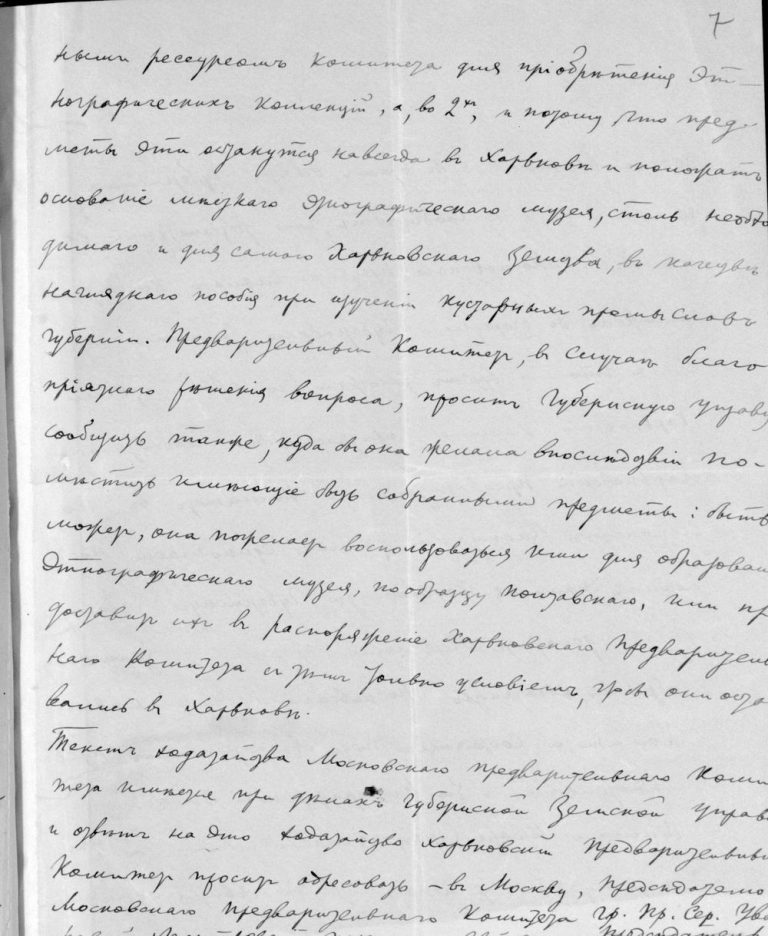 7
нымъ рессурсомъ Комитета для пріобрѣтенія Эт-
нографическихъ Коллекцій, а, во 2хъ, и потому что пред-
меты эти останутся навсегда въ Харьковѣ и положатъ
основаніе мѣстнаго этнографическаго музея, столь необхо
димаго и для самого Харьковскаго Земства, въ качествѣ
нагляднаго пособія при изученіи кустарныхъ промысловъ
губерніи. Предварительный Комитет, въ случаѣ благо
пріятнаго рѣшенія вопроса, проситъ Губернскую управу
сообщить также, куда бы она желала впослѣдствіи по-
мѣстить имѣющіе быть собранными предметы: быть
может, она пожелает воспользоваться ими для образован
Этнографическаго музея, по образцу Полтавскаго, или пр
доставит ихъ въ распоряженіе Харьковскаго Предваритель
наго Комитета съ тѣмъ только условіемъ, чтобы они оста
вались въ Харьковѣ.
Текстъ ходатайства Московскаго предварительнаго Коми
тета имѣется при дѣлахъ Губернской Земской управ
и отвѣтъ на это ходатайство Харьковскій Предварительны
Комитет просит адресовать – въ Москву, Предсѣдателю
Московскаго Предварительнаго Комитета гр. Пр. Сер. Ува